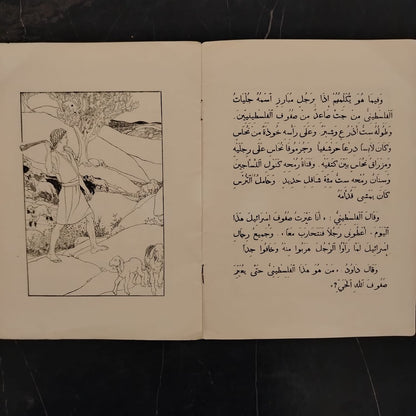 وَفِيمَا هُوَ يُكَلِّمُهُمْ إِذَا بِرَجُلٍ مُبَارِزٍ اسْمُهُ جُلْيَاتُ
الْفِلِسْطِينِيُّ مِنْ جَتَّ صَاعِدٌ مِنْ صُفُوفِ الْفِلِسْطِينِيِّينَ.
وَطُولُهُ سِتُّ أَذْرُعٍ وَشِبْرٌ وَعَلَى رَأْسِهِ خُوذَةٌ مِنْ نُحَاسٍ
وَكَانَ لَابِسًا دِرْعًا حَرْشَفِيًّا وَجُرْمُوقَا نُحَاسٍ عَلَى رِجْلَيْهِ
وَمِزْرَاقُ نُحَاسٍ بَيْنَ كَتِفَيْهِ وَقَنَاةُ رُمْحِهِ كَنَوْلِ النَّسَّاجِينَ
وَسِنَانُ رُمْحِهِ سِتُّ مِئَةِ شَاقِلِ حَدِيدٍ وَحَامِلُ التُّرْسِ
كَانَ يَمْشِي قُدَّامَهُ
وَقَالَ الْفِلِسْطِينِيُّ: أَنَا عَيَّرْتُ صُفُوفَ إِسْرَائِيلَ هَذَا
الْيَوْمَ. أَعْطُونِي رَجُلًا فَنَتَحَارَبَ مَعًا. وَجَمِيعُ رِجَالِ
إِسْرَائِيلَ لَمَّا رَأَوْا الرَّجُلَ هَرَبُوا مِنْهُ وَخَافُوا جِدًّا
وَقَالَ دَاوُدُ. مَنْ هُوَ هَذَا الْفِلِسْطِينِيُّ حَتَّى يُعَيِّرَ
صُفُوفَ اللهِ الْحَيِّ؟.